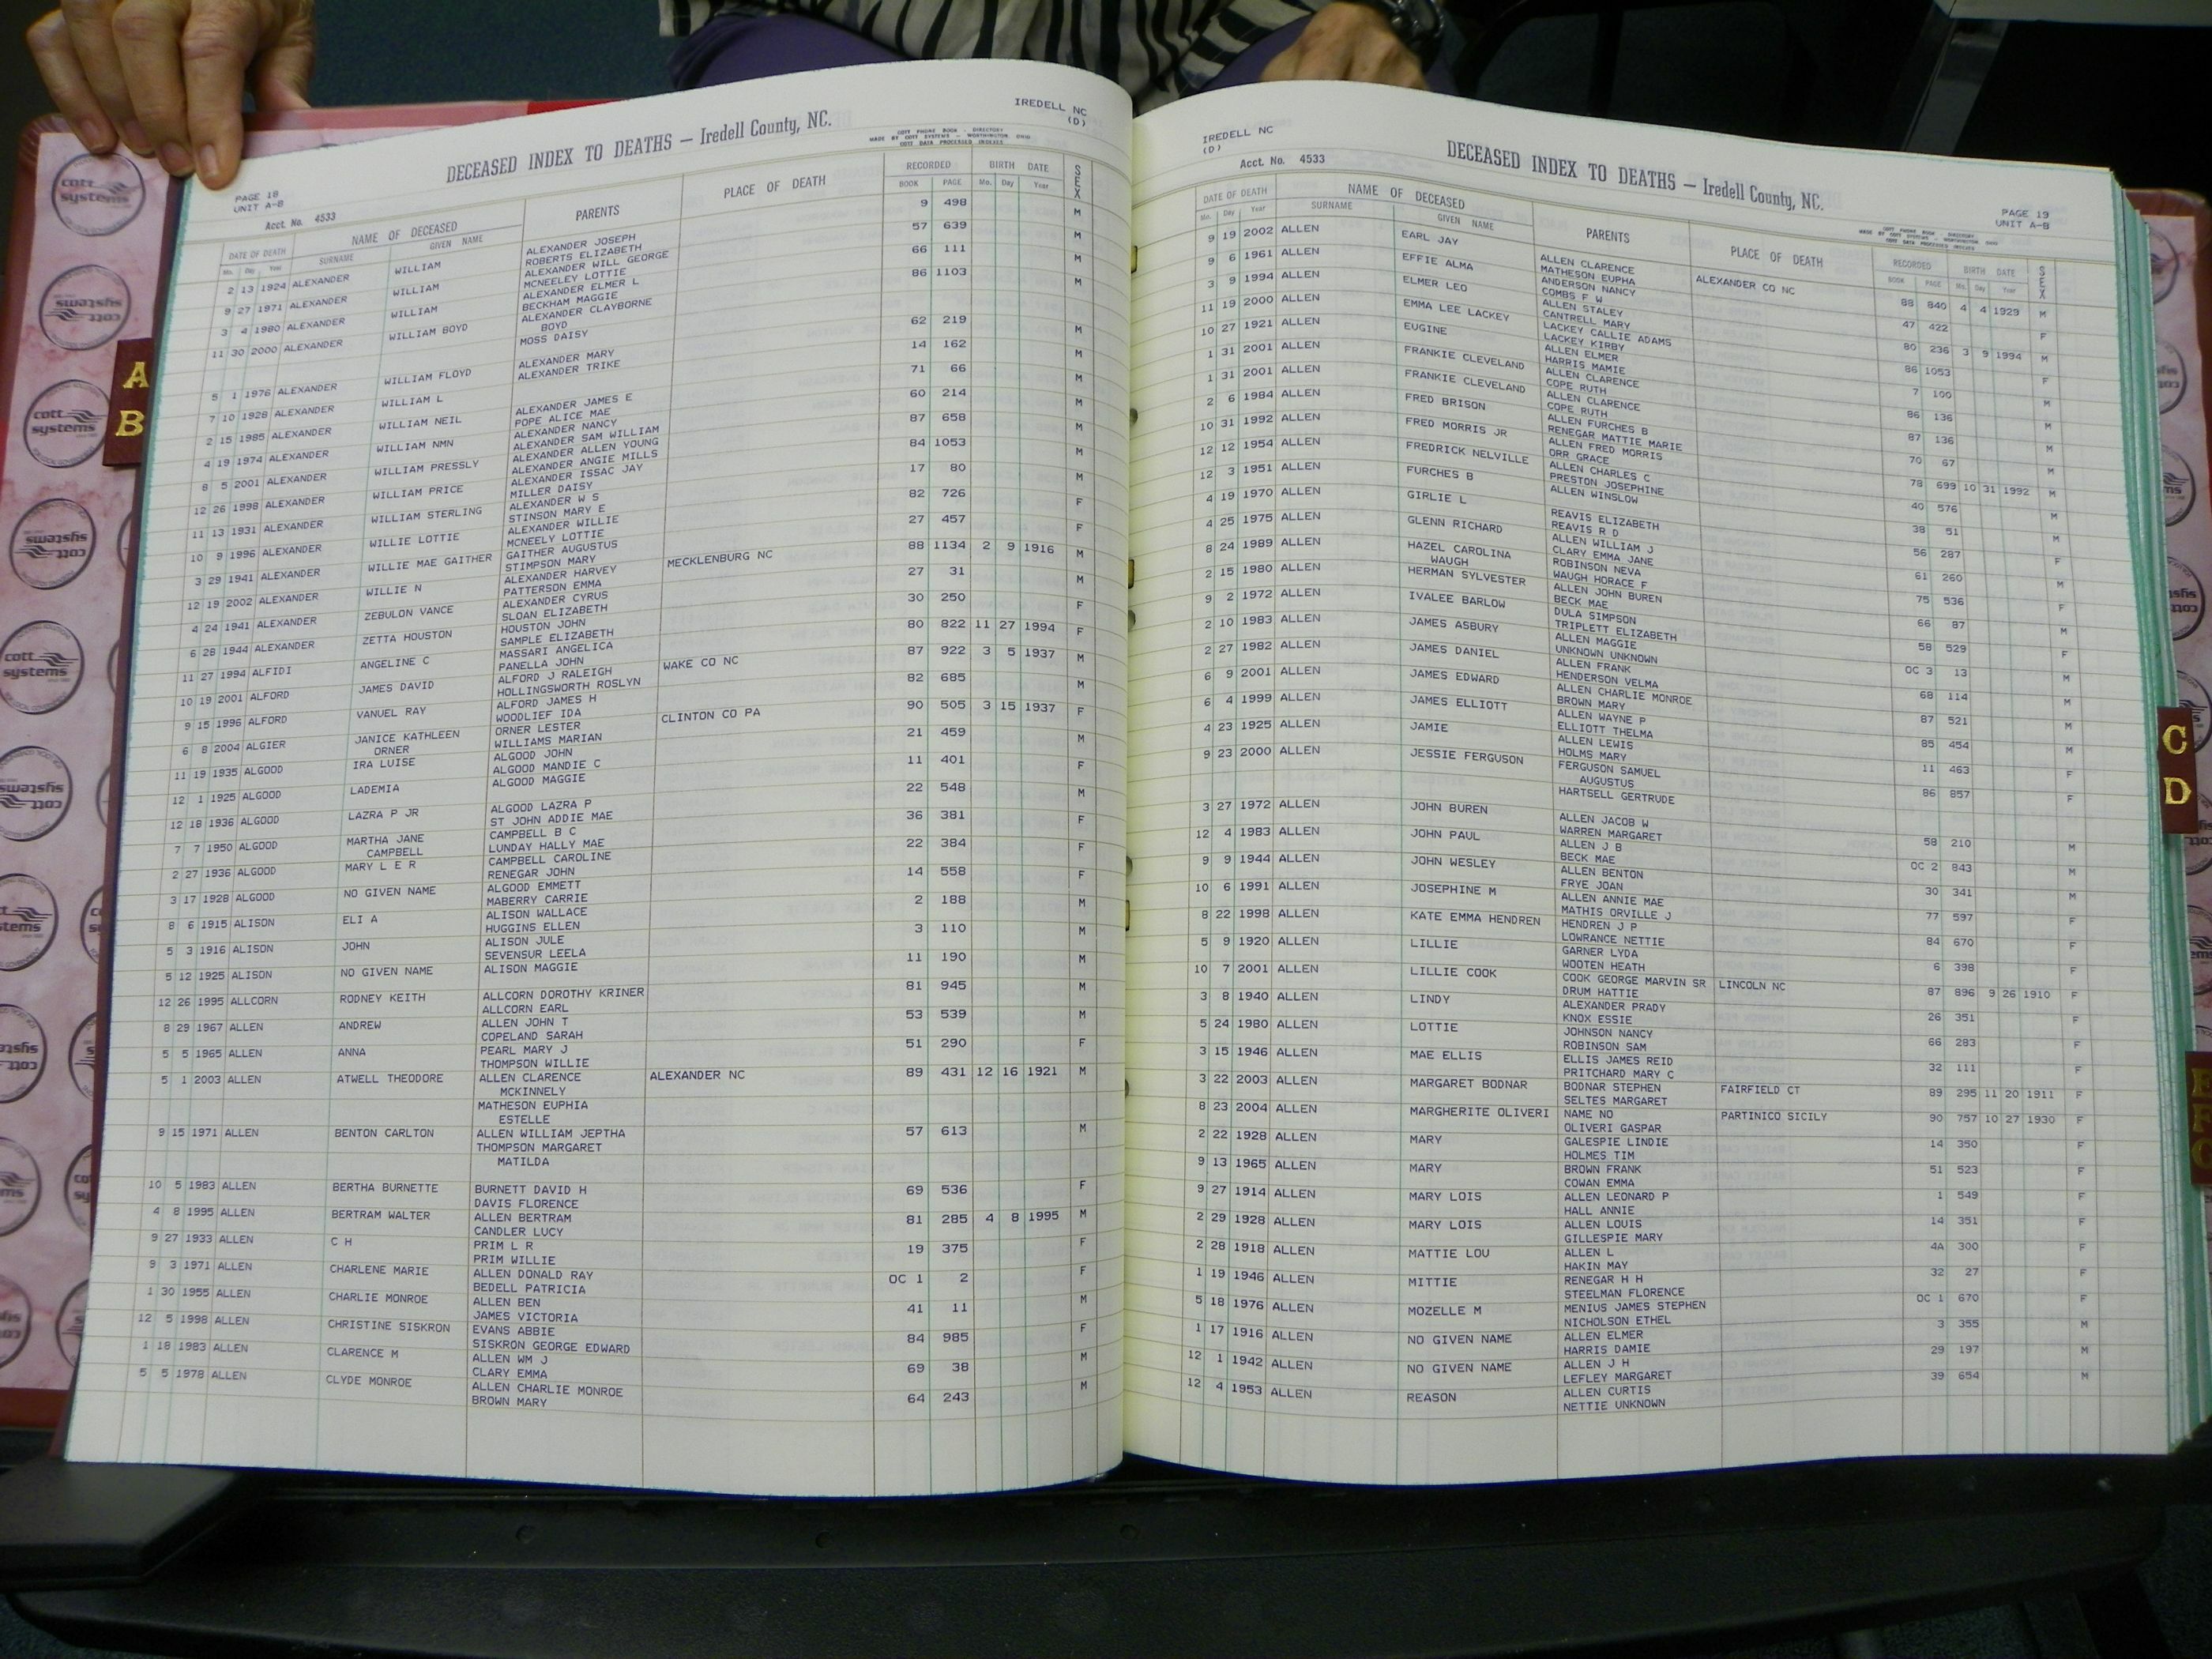 IREDELL NC
(D)
DECEASED INDEX TO DEATHS — Iredell County, NC.
COTT PHONE BOOK - DIRECTORY
MADE BY COTT SYSTEMS - WORTHINGTON OHIO
COTT DATA PROCESSED INDEXES
PAGE 18
UNIT A-B
Acct. No. 4533
DATE OF DEATH NAME OF DECEASED PARENTS PLACE OF DEATH RECORDED BIRTH DATE SEX
Mo. Day Year SURNAME GIVEN NAME BOOK PAGE Mo. Day Year
2 13 1924 ALEXANDER WILLIAM ALEXANDER JOSEPH 9 498 M
ROBERTS ELIZABETH
9 27 1971 ALEXANDER WILLIAM ALEXANDER WILL GEORGE 57 639 M
MCNEELEY LOTTIE
3 4 1980 ALEXANDER WILLIAM ALEXANDER ELMER L 66 111 M
BECKHAM MAGGIE
11 30 2000 ALEXANDER WILLIAM BOYD ALEXANDER CLAYBORNE 86 1103 M
BOYD
MOSS DAISY
5 1 1976 ALEXANDER WILLIAM FLOYD ALEXANDER MARY 62 219 M
ALEXANDER TRIKE
7 10 1928 ALEXANDER WILLIAM L 14 162 M
2 15 1985 ALEXANDER WILLIAM NEIL ALEXANDER JAMES E 71 66 M
POPE ALICE MAE
4 19 1974 ALEXANDER WILLIAM NMN ALEXANDER NANCY 60 214 M
ALEXANDER SAM WILLIAM
8 5 2001 ALEXANDER WILLIAM PRESSLY ALEXANDER ALLEN YOUNG 87 658 M
ALEXANDER ANGIE MILLS
12 26 1998 ALEXANDER WILLIAM PRICE ALEXANDER ISSAC JAY 84 1053 M
MILLER DAISY
11 13 1931 ALEXANDER WILLIAM STERLING ALEXANDER W S 17 80 M
STINSON MARY E
10 9 1996 ALEXANDER WILLIE LOTTIE ALEXANDER WILLIE 82 726 F
MCNEELY LOTTIE
3 29 1941 ALEXANDER WILLIE MAE GAITHER GAITHER AUGUSTUS 27 457 F
STIMPSON MARY
12 19 2002 ALEXANDER WILLIE N ALEXANDER HARVEY MECKLENBURG NC 88 1134 2 9 1916 M
PATTERSON EMMA
4 24 1941 ALEXANDER ZEBULON VANCE ALEXANDER CYRUS 27 31 M
SLOAN ELIZABETH
6 28 1944 ALEXANDER ZETTA HOUSTON HOUSTON JOHN 30 250 F
SAMPLE ELIZABETH
11 27 1994 ALFIDI ANGELINE C MASSARI ANGELICA 80 822 11 27 1994 F
PANELLA JOHN
10 19 2001 ALFORD JAMES DAVID ALFORD J RALEIGH WAKE CO NC 87 922 3 5 1937 M
HOLLINGSWORTH ROSLYN
9 15 1996 ALFORD VANUEL RAY ALFORD JAMES H 82 685 M
WOODLIEF IDA
6 8 2004 ALGIER JANICE KATHLEEN ORNER LESTER CLINTON CO PA 90 505 3 15 1937 F
ORNER WILLIAMS MARIAN
11 19 1935 ALGOOD IRA LUISE ALGOOD JOHN 21 459 M
ALGOOD MANDIE C
12 1 1925 ALGOOD LADEMIA ALGOOD MAGGIE 11 401 F
12 18 1936 ALGOOD LAZRA P JR ALGOOD LAZRA P 22 548 M
ST JOHN ADDIE MAE
7 7 1950 ALGOOD MARTHA JANE CAMPBELL B C 36 381 F
CAMPBELL LUNDAY HALLY MAE
2 27 1936 ALGOOD MARY L E R CAMPBELL CAROLINE 22 384 F
RENEGAR JOHN
3 17 1928 ALGOOD NO GIVEN NAME ALGOOD EMMETT 14 558 F
MABERRY CARRIE
8 6 1915 ALISON ELI A ALISON WALLACE 2 188 M
HUGGINS ELLEN
5 3 1916 ALISON JOHN ALISON JULE 3 110 M
SEVENSUR LEELA
5 12 1925 ALISON NO GIVEN NAME ALISON MAGGIE 11 190 M
12 26 1995 ALLCORN RODNEY KEITH ALLCORN DOROTHY KRINER 81 945 M
ALLCORN EARL
8 29 1967 ALLEN ANDREW ALLEN JOHN T 53 539 M
COPELAND SARAH
5 5 1965 ALLEN ANNA PEARL MARY J 51 290 F
THOMPSON WILLIE
5 1 2003 ALLEN ATWELL THEODORE ALLEN CLARENCE ALEXANDER NC 89 431 12 16 1921 M
MCKINNELY
MATHESON EUPHIA
ESTELLE
9 15 1971 ALLEN BENTON CARLTON ALLEN WILLIAM JEPTHA 57 613 M
THOMPSON MARGARET
MATILDA
10 5 1983 ALLEN BERTHA BURNETTE BURNETT DAVID H 69 536 F
DAVIS FLORENCE
4 8 1995 ALLEN BERTRAM WALTER ALLEN BERTRAM 81 285 4 8 1995 M
CANDLER LUCY
9 27 1933 ALLEN C H PRIM L R 19 375 F
PRIM WILLIE
9 3 1971 ALLEN CHARLENE MARIE ALLEN DONALD RAY OC 1 2 F
BEDELL PATRICIA
1 30 1955 ALLEN CHARLIE MONROE ALLEN BEN 41 11 M
JAMES VICTORIA
12 5 1998 ALLEN CHRISTINE SISKRON EVANS ABBIE 84 985 F
SISKRON GEORGE EDWARD
1 18 1983 ALLEN CLARENCE M ALLEN WM J 69 38 M
CLARY EMMA
5 5 1978 ALLEN CLYDE MONROE ALLEN CHARLIE MONROE 64 243 M
BROWN MARY
IREDELL NC
(D)
Acct. No. 4533
DECEASED INDEX TO DEATHS — Iredell County, NC.
PAGE 19
UNIT A-B
COTT PHONE BOOK - DIRECTORY
MADE BY COTT SYSTEMS - WORTHINGTON OHIO
COTT DATA PROCESSED INDEXES
DATE OF DEATH NAME OF DECEASED PARENTS PLACE OF DEATH RECORDED BIRTH DATE SEX
Mo. Day Year SURNAME GIVEN NAME BOOK PAGE Mo. Day Year
9 19 2002 ALLEN EARL JAY ALLEN CLARENCE ALEXANDER CO NC 88 840 4 4 1929 M
MATHESON EUPHA
9 6 1961 ALLEN EFFIE ALMA ANDERSON NANCY 47 422 F
COMBS F W
3 9 1994 ALLEN ELMER LEO ALLEN STALEY 80 236 3 9 1994 M
CANTRELL MARY
11 19 2000 ALLEN EMMA LEE LACKEY LACKEY CALLIE ADAMS 86 1053 F
LACKEY KIRBY
10 27 1921 ALLEN EUGINE ALLEN ELMER 7 100 M
HARRIS MAMIE
1 31 2001 ALLEN FRANKIE CLEVELAND ALLEN CLARENCE 86 136 M
COPE RUTH
1 31 2001 ALLEN FRANKIE CLEVELAND ALLEN CLARENCE 87 136 M
COPE RUTH
2 6 1984 ALLEN FRED BRISON ALLEN FURCHES B 70 67 M
RENEGAR MATTIE MARIE
10 31 1992 ALLEN FRED MORRIS JR ALLEN FRED MORRIS 78 699 10 31 1992 M
ORR GRACE
12 12 1954 ALLEN FREDRICK NELVILLE ALLEN CHARLES C 40 576 M
PRESTON JOSEPHINE
12 3 1951 ALLEN FURCHES B ALLEN WINSLOW 38 51
4 19 1970 ALLEN GIRLIE L REAVIS ELIZABETH 56 287 F
REAVIS R D
4 25 1975 ALLEN GLENN RICHARD ALLEN WILLIAM J 61 260 M
CLARY EMMA JANE
8 24 1989 ALLEN HAZEL CAROLINA ROBINSON NEVA 75 536 F
WAUGH WAUGH HORACE F
2 15 1980 ALLEN HERMAN SYLVESTER ALLEN JOHN BUREN 66 87 M
BECK MAE
9 2 1972 ALLEN IVALEE BARLOW DULA SIMPSON 58 529 F
TRIPLETT ELIZABETH
2 10 1983 ALLEN JAMES ASBURY ALLEN MAGGIE OC 3 13 M
UNKNOWN UNKNOWN
2 27 1982 ALLEN JAMES DANIEL ALLEN FRANK 68 114 M
HENDERSON VELMA
6 9 2001 ALLEN JAMES EDWARD ALLEN CHARLIE MONROE 87 521 M
BROWN MARY
6 4 1999 ALLEN JAMES ELLIOTT ALLEN WAYNE P 85 454 M
ELLIOTT THELMA
4 23 1925 ALLEN JAMIE ALLEN LEWIS 11 463 F
HOLMS MARY
9 23 2000 ALLEN JESSIE FERGUSON FERGUSON SAMUEL 86 857 F
AUGUSTUS
HARTSELL GERTRUDE
3 27 1972 ALLEN JOHN BUREN ALLEN JACOB W 58 210 M
WARREN MARGARET
12 4 1983 ALLEN JOHN PAUL ALLEN J B OC 2 843 M
BECK MAE
9 9 1944 ALLEN JOHN WESLEY ALLEN BENTON 30 341 M
FRYE JOAN
10 6 1991 ALLEN JOSEPHINE M ALLEN ANNIE MAE 77 597 F
MATHIS ORVILLE J
8 22 1998 ALLEN KATE EMMA HENDREN HENDREN J P 84 670 F
LOWRANCE NETTIE
5 9 1920 ALLEN LILLIE GARNER LYDA 6 398 F
WOOTEN HEATH
10 7 2001 ALLEN LILLIE COOK COOK GEORGE MARVIN SR LINCOLN NC 87 896 9 26 1910 F
DRUM HATTIE
3 8 1940 ALLEN LINDY ALEXANDER PRADY 26 351 F
KNOX ESSIE
5 24 1980 ALLEN LOTTIE JOHNSON NANCY 66 283 F
ROBINSON SAM
3 15 1946 ALLEN MAE ELLIS ELLIS JAMES REID 32 111 F
PRITCHARD MARY C
3 22 2003 ALLEN MARGARET BODNAR BODNAR STEPHEN FAIRFIELD CT 89 295 11 20 1911 F
SELTES MARGARET
8 23 2004 ALLEN MARGHERITE OLIVERI NAME NO PARTINICO SICILY 90 757 10 27 1930 F
OLIVERI GASPAR
2 22 1928 ALLEN MARY GALESPIE LINDIE 14 350 F
HOLMES TIM
9 13 1965 ALLEN MARY BROWN FRANK 51 523 F
COWAN EMMA
9 27 1914 ALLEN MARY LOIS ALLEN LEONARD P 1 549 F
HALL ANNIE
2 29 1928 ALLEN MARY LOIS ALLEN LOUIS 14 351 F
GILLESPIE MARY
2 28 1918 ALLEN MATTIE LOU ALLEN L 4A 300 F
HAKIN MAY
1 19 1946 ALLEN MITTIE RENEGAR H H 32 27 F
STEELMAN FLORENCE
5 18 1976 ALLEN MOZELLE M MENIUS JAMES STEPHEN OC 1 670 F
NICHOLSON ETHEL
1 17 1916 ALLEN NO GIVEN NAME ALLEN ELMER 3 355 M
HARRIS DAMIE
12 1 1942 ALLEN NO GIVEN NAME ALLEN J H 29 197 M
LEFLEY MARGARET
12 4 1953 ALLEN REASON ALLEN CURTIS 39 654 M
NETTIE UNKNOWN
A
B
C
D
cott
systems